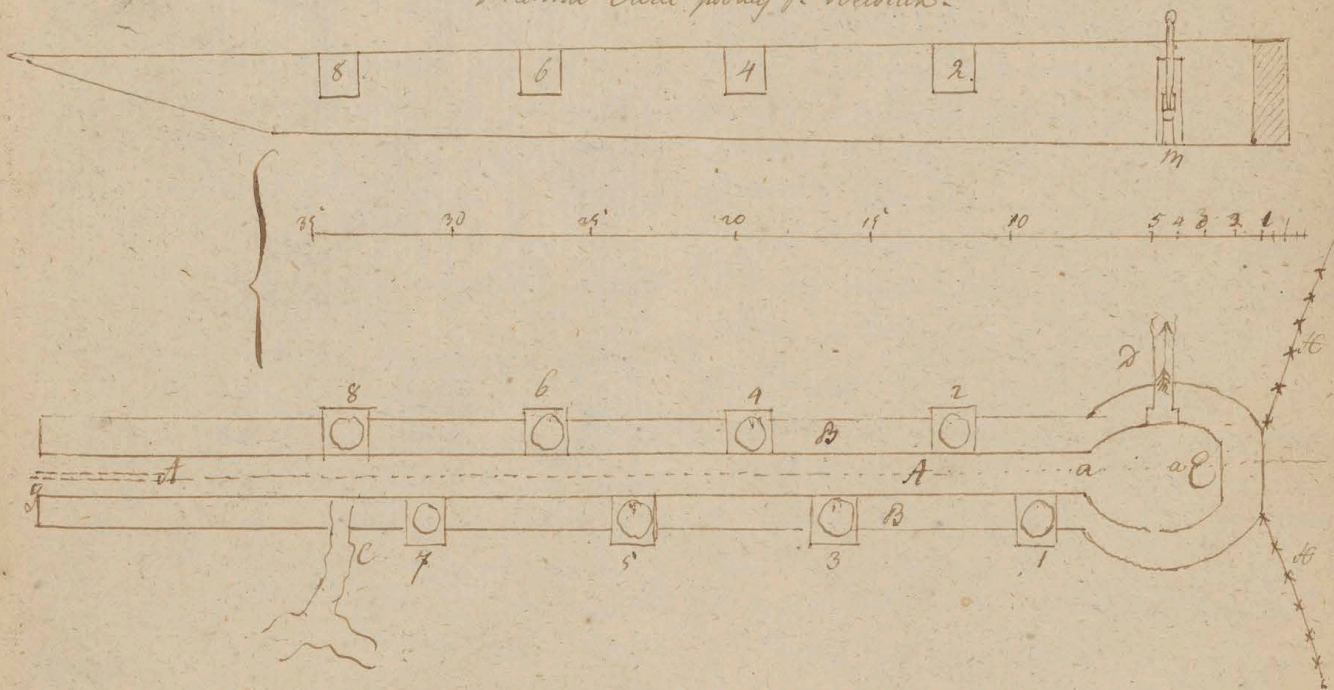 8 6 4 2.
m
35 30 25 20 15 10 5 4 3 2 1
D
H
8 6 4 2
B
A A a a E
g
B
C
7 5 3 1
H